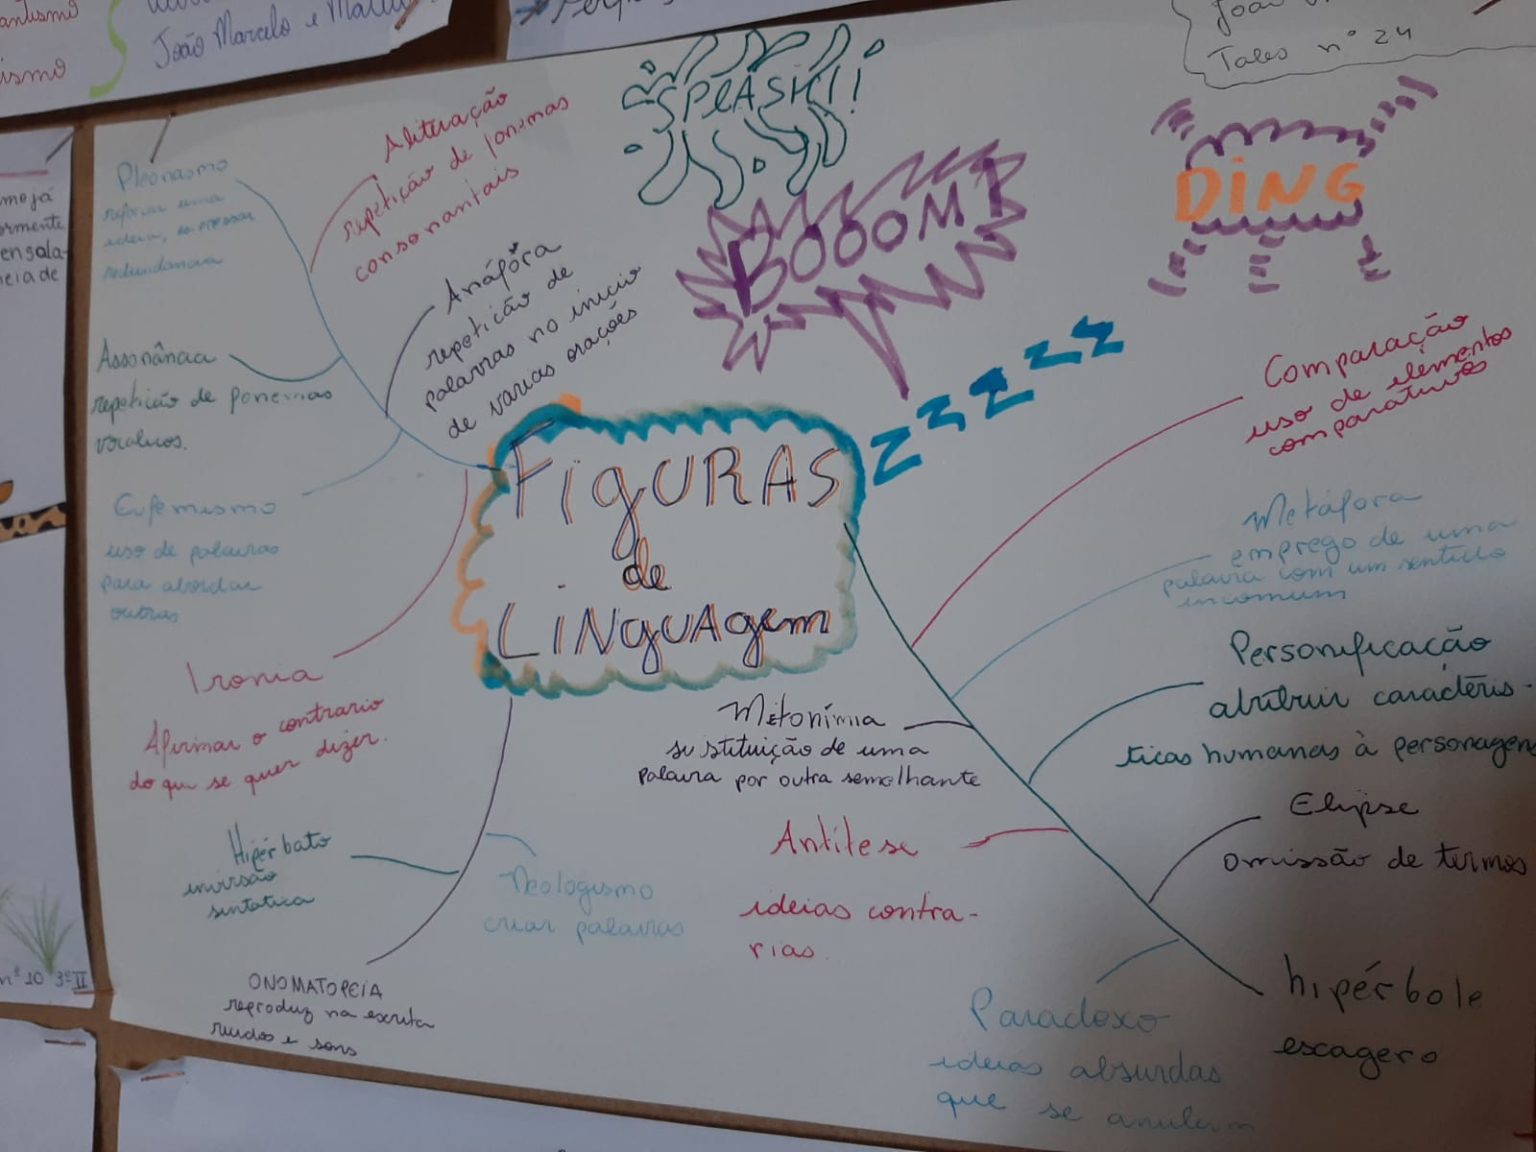 antismo
ismo
João Marcelo e
Tales nº 24
SPLASH!!
BOOOM!
DING
zzzzz
FiguRAS
de
LiNguAgem
Pleonasmo
reforçar uma
ideia, expressar
redundancia
Aliteração
repetição de fonemas
consonantais
Anáfora
repetição de
palavras no inicio
de varias orações
Assonância
repetição de fonemas
vocalicos.
Eufemismo
uso de palavras
para abordar
outras
Ironia
Afirmar o contrario
do que se quer dizer.
Hipérbato
inversão
sintatica
Neologismo
criar palavras
ONOMATOPEIA
reproduz na escrita
ruidos e sons
Comparação
uso de elementos
comparativos
Metáfora
emprego de uma
palavra com um sentido
incomum
Personificação
atribuir caracteris-
ticas humanas à personagens
Metonímia
substituição de uma
palavra por outra semelhante
Elipse
omissão de termos
Antitese
ideias contra-
rias.
hipérbole
escagero
Paradoxo
ideias absurdas
que se anulam
mo já
ormente
engala-
eia de
nº 10 3º II